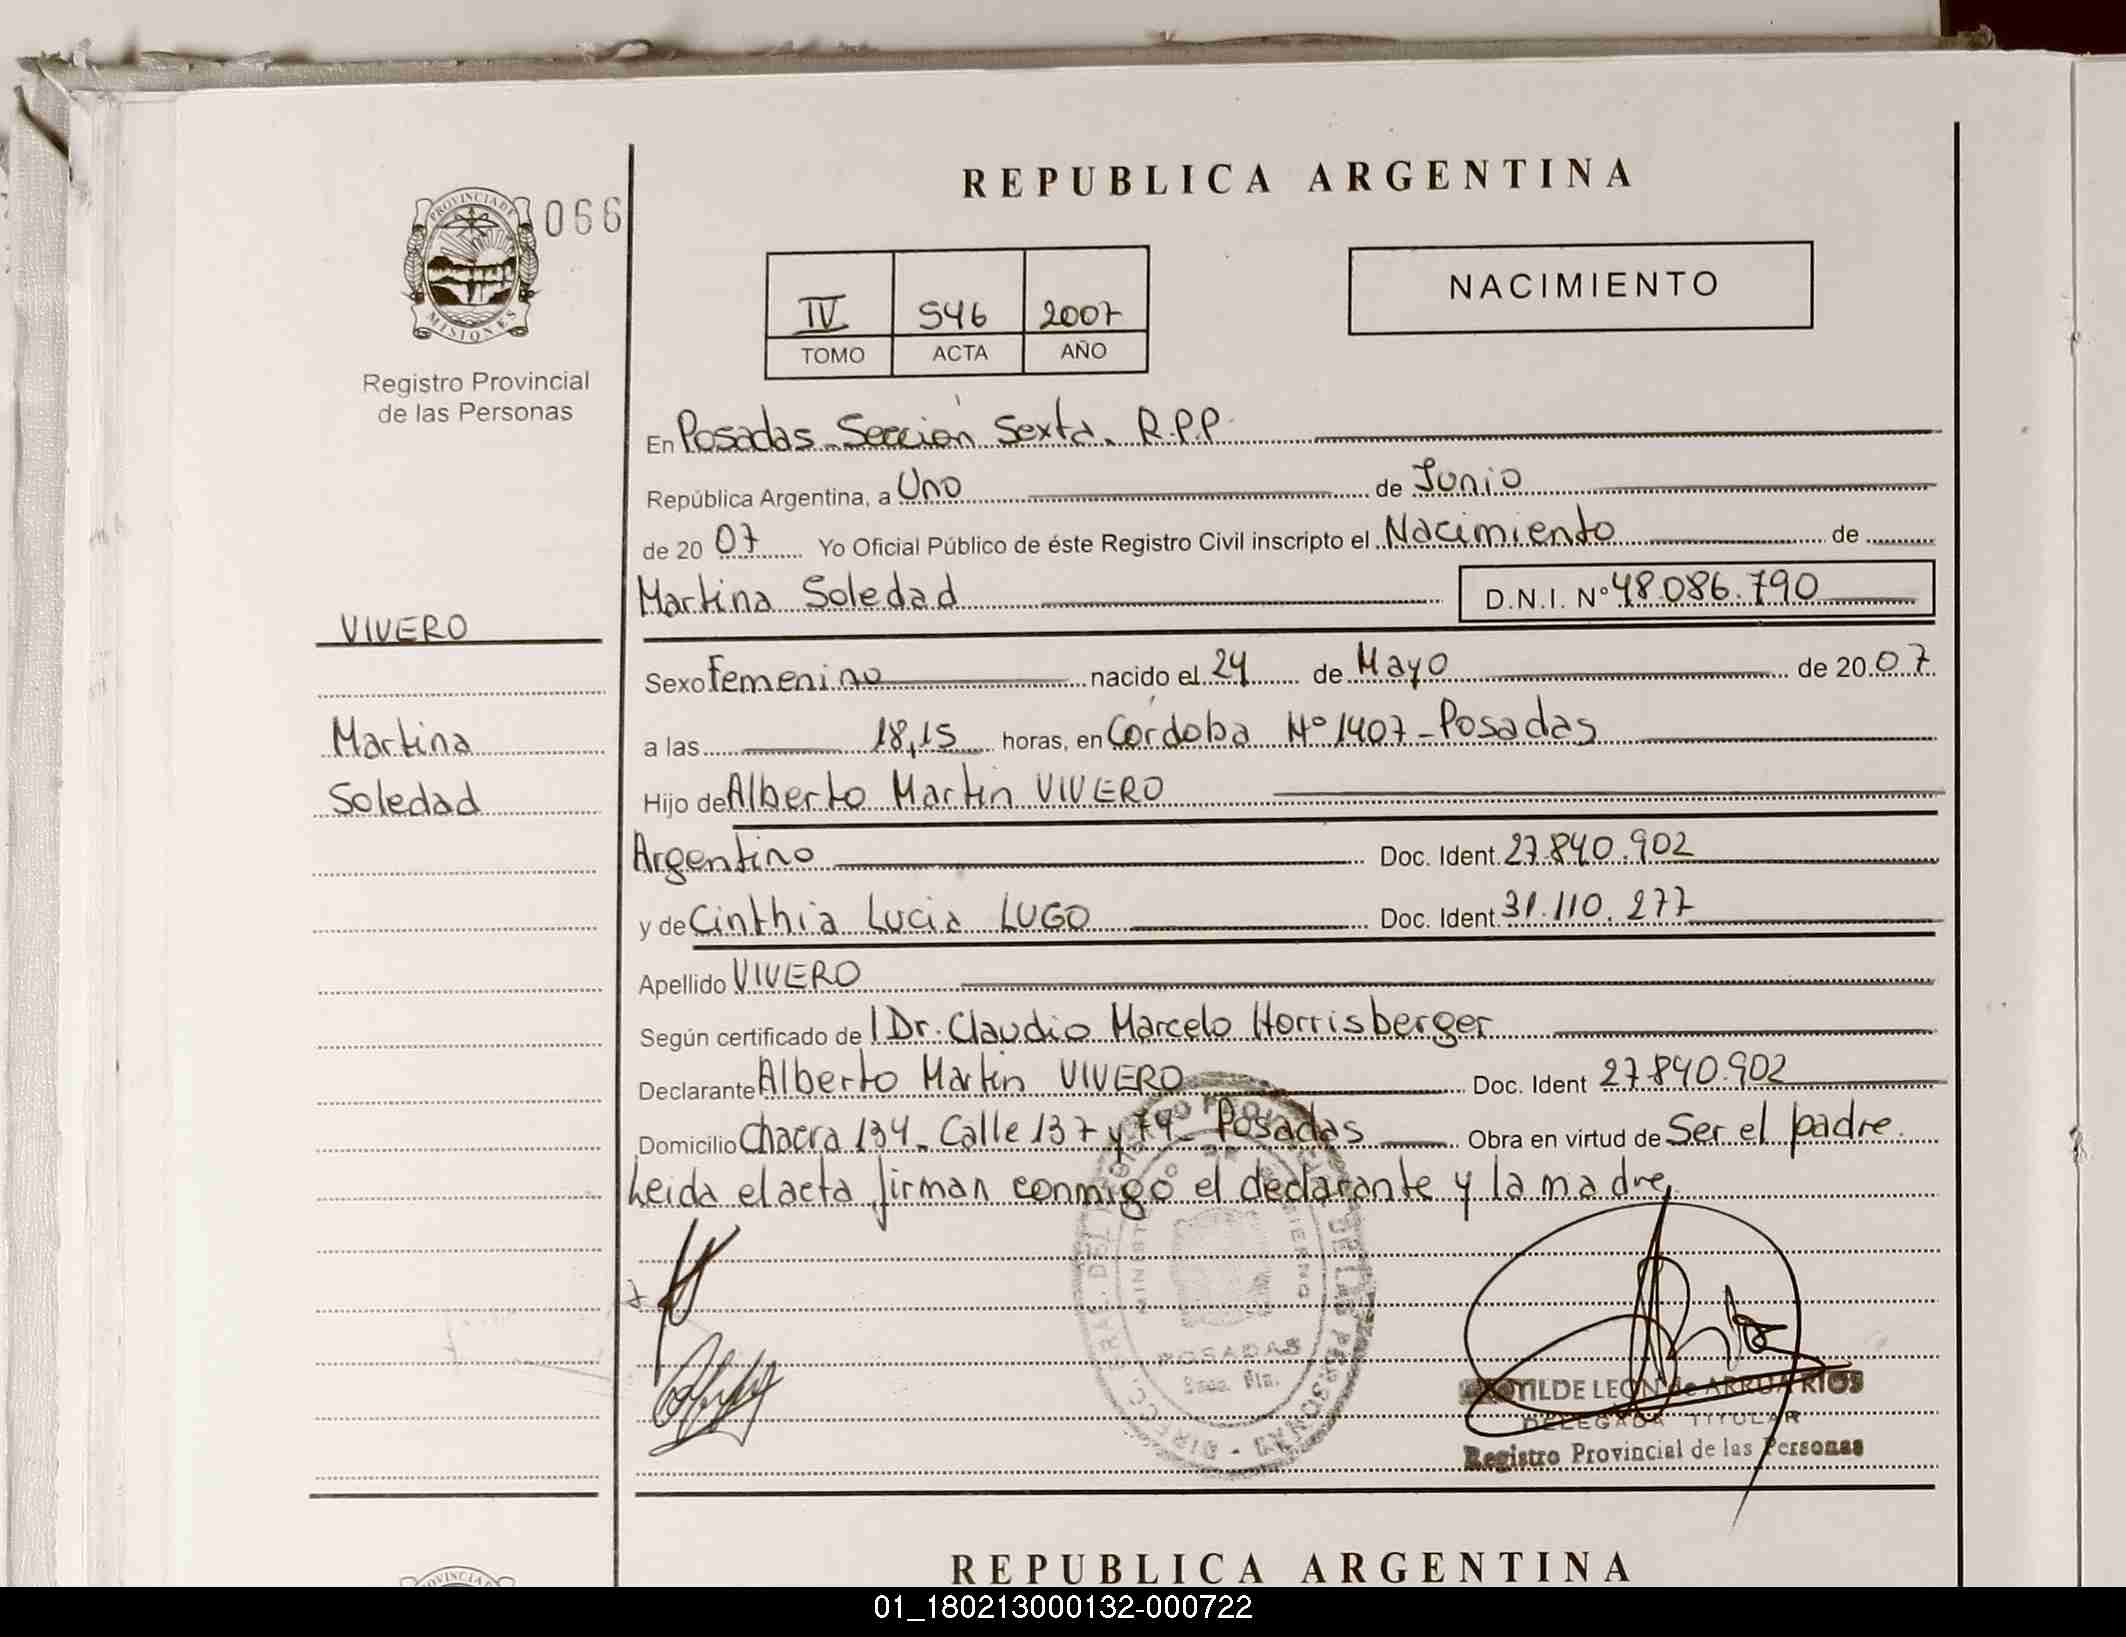 REPUBLICA ARGENTINA
PROVINCIA DE
MISIONES
066
Registro Provincial
de las Personas
IV 546 2007
TOMO ACTA AÑO
NACIMIENTO
En Posadas Sección Sexta. R.P.P.
República Argentina, a Uno de Junio
de 20 07 Yo Oficial Público de éste Registro Civil inscripto el Nacimiento de
Martina Soledad D.N.I. Nº 48.086.790
VIVERO
Sexo Femenino nacido el 24 de Mayo de 20 07
Martina
a las 18,15 horas, en Córdoba Nº 1407 - Posadas
Soledad
Hijo de Alberto Martin VIVERO
Argentino Doc. Ident. 27.840.902
y de Cinthia Lucia LUGO Doc. Ident. 31.110.277
Apellido VIVERO
Según certificado de l Dr. Claudio Marcelo Horrisberger
Declarante Alberto Martin VIVERO Doc. Ident 27.840.902
Domicilio Chacra 134 - Calle 137 y 79 - Posadas Obra en virtud de Ser el padre.
Leida el acta firman conmigo el declarante y la madre
POSADAS
DE LAS PERSONAS
TILDE LEON de ARRUA RIOS
DELEGADA TITULAR
Registro Provincial de las Personas
REPUBLICA ARGENTINA
01_180213000132-000722